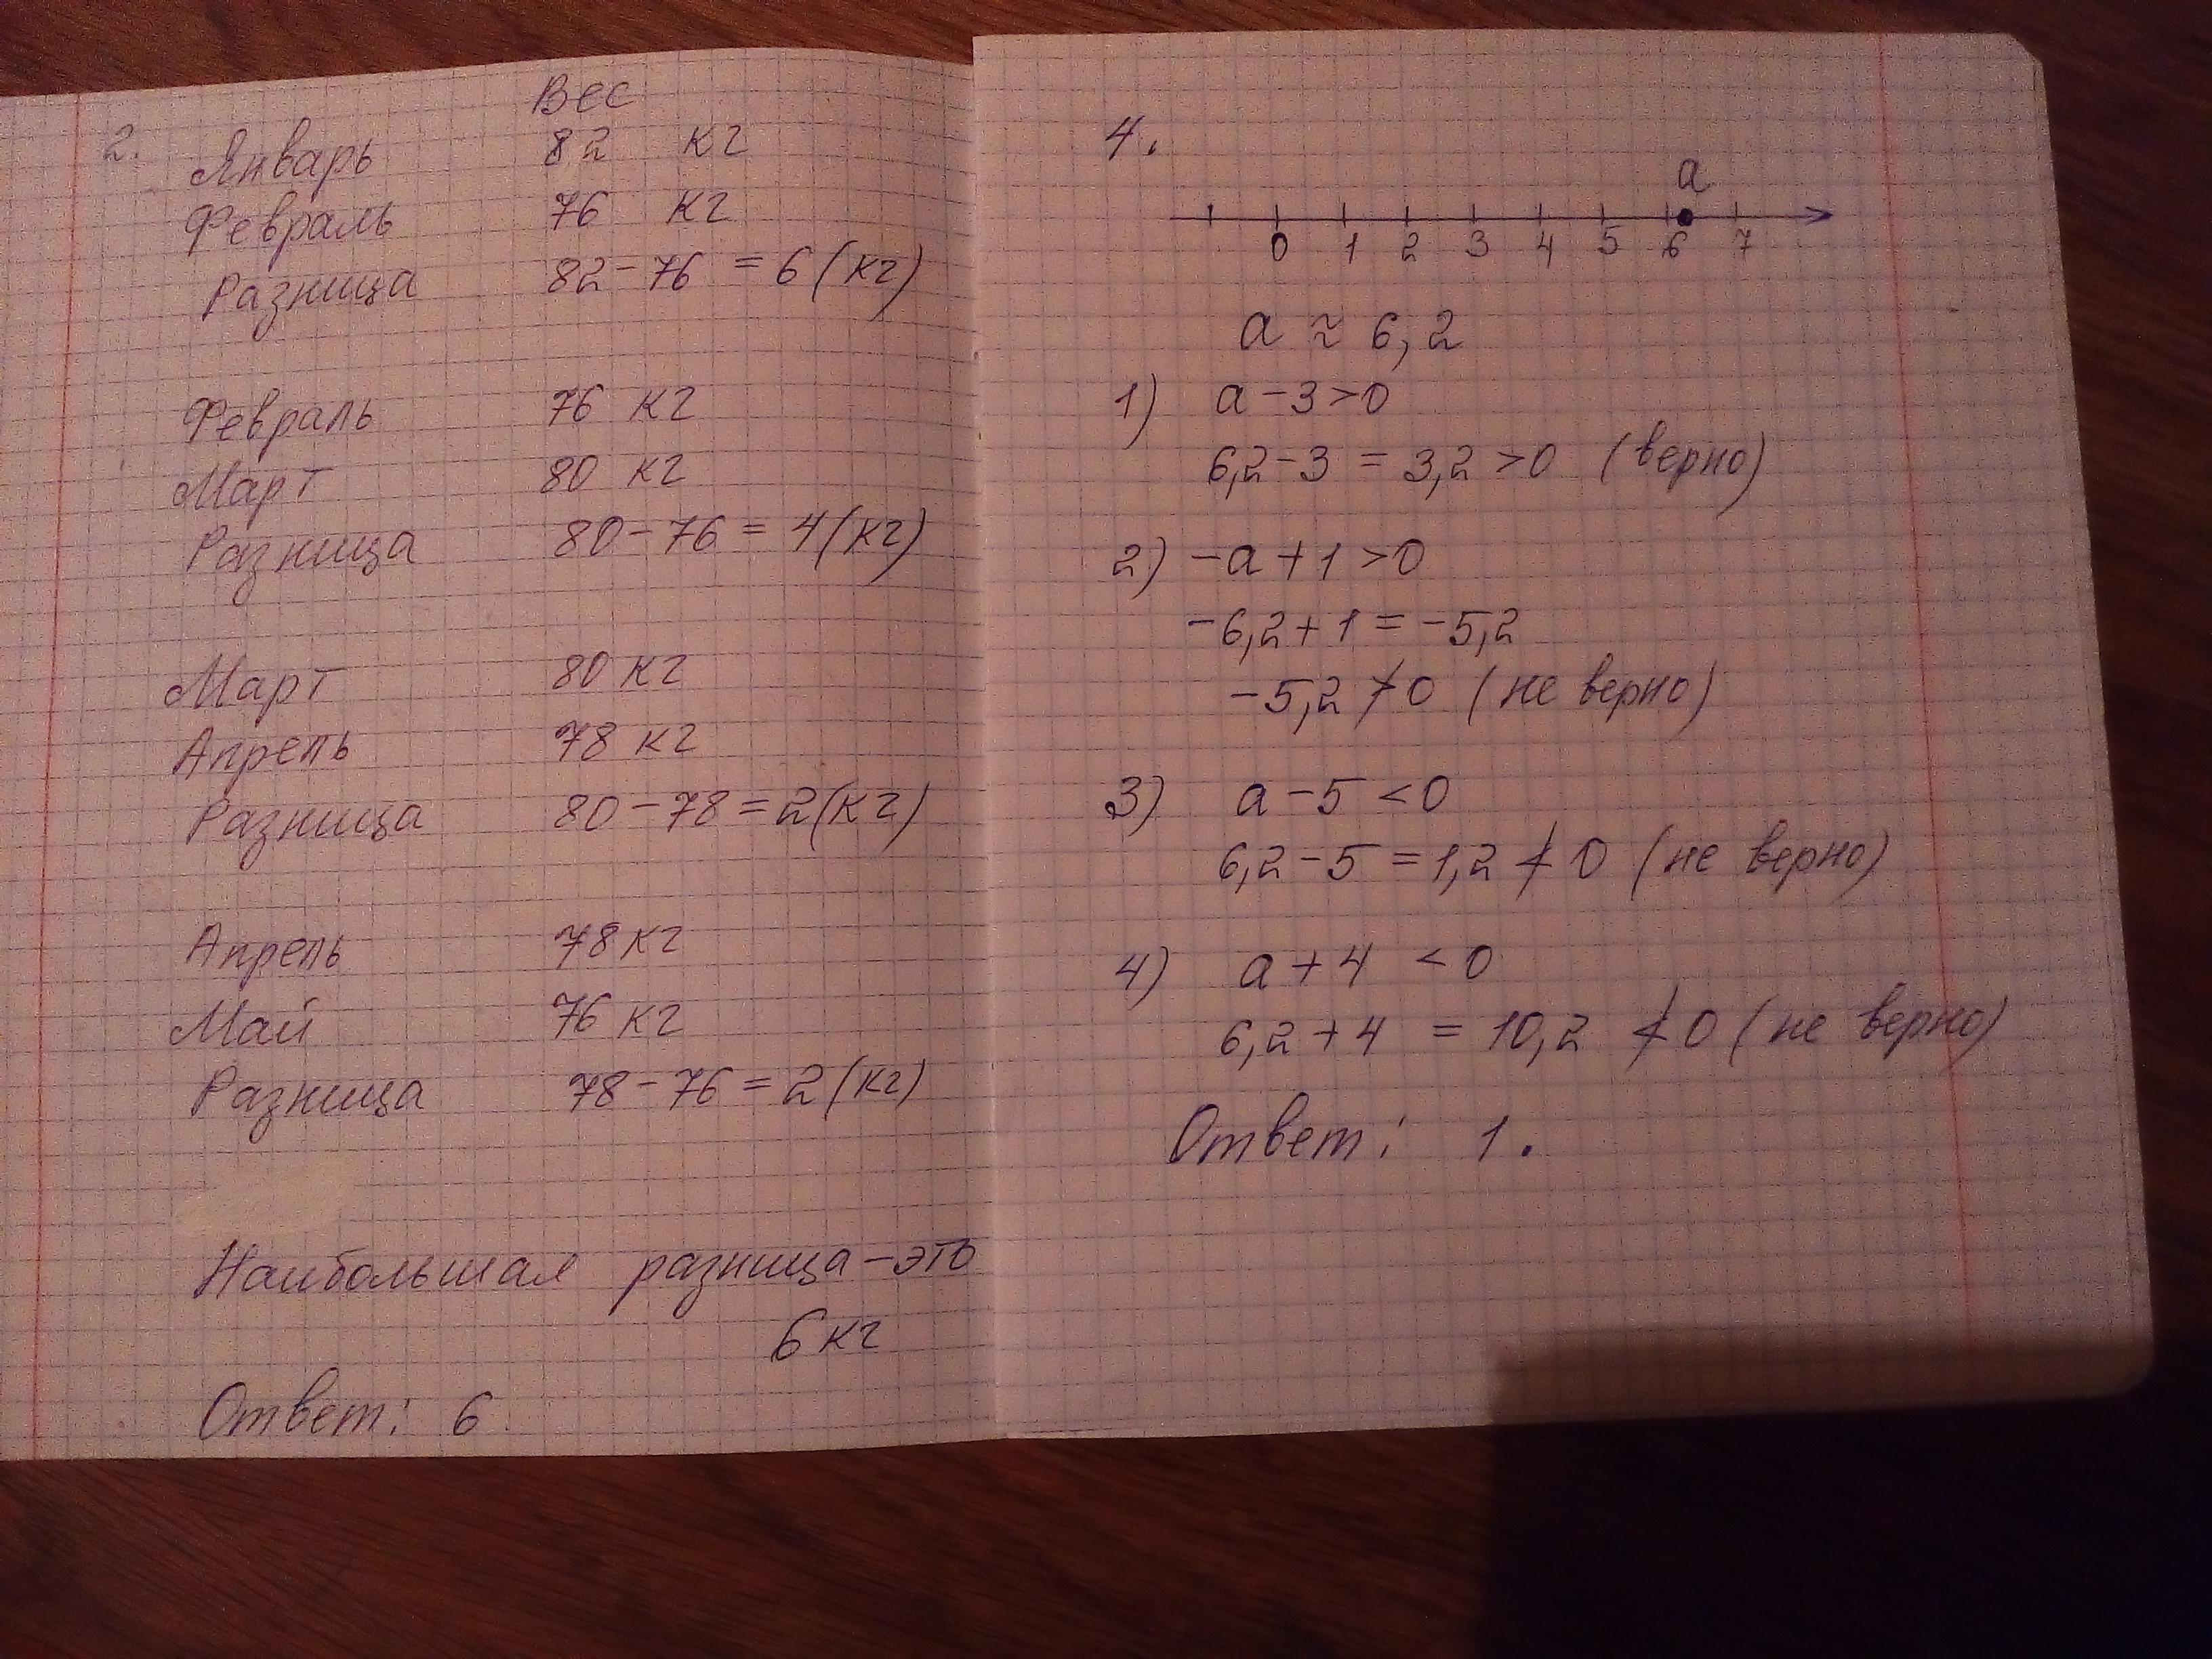 2.
Вес
Январь 82 кг
Февраль 76 кг
Разница 82 - 76 = 6 (кг)
Февраль 76 кг
Март 80 кг
Разница 80 - 76 = 4 (кг)
Март 80 кг
Апрель 78 кг
Разница 80 - 78 = 2 (кг)
Апрель 78 кг
Май 76 кг
Разница 78 - 76 = 2 (кг)
Наибольшая разница - это
6 кг
Ответ: 6
4.
a
0 1 2 3 4 5 6 7
a ≈ 6,2
1) a - 3 > 0
6,2 - 3 = 3,2 > 0 (верно)
2) -a + 1 > 0
-6,2 + 1 = -5,2
-5,2 ≯ 0 (не верно)
3) a - 5 < 0
6,2 - 5 = 1,2 ≮ 0 (не верно)
4) a + 4 < 0
6,2 + 4 = 10,2 ≮ 0 (не верно)
Ответ: 1.